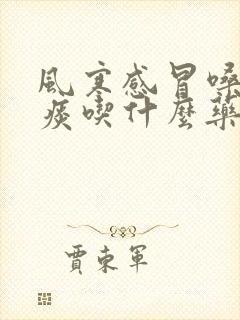 風寒感冒嗓
痰喫什麼藥
賈東軍